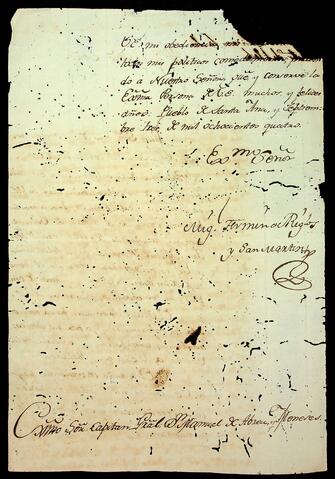 VE. mi obediencia
mis politicos
do à Nuestro Señor que y conserve la
Exma Persona de VE. muchos, y felices
años. Pueblo de Santa Ana, y Septiem
bre tres, de mil ochocientos quatro.
Exmo Señor
Mig. Fermin de
y San Martin
Exmo Sor Capitan Gral Dn Manuel de Abreu, y Meneses